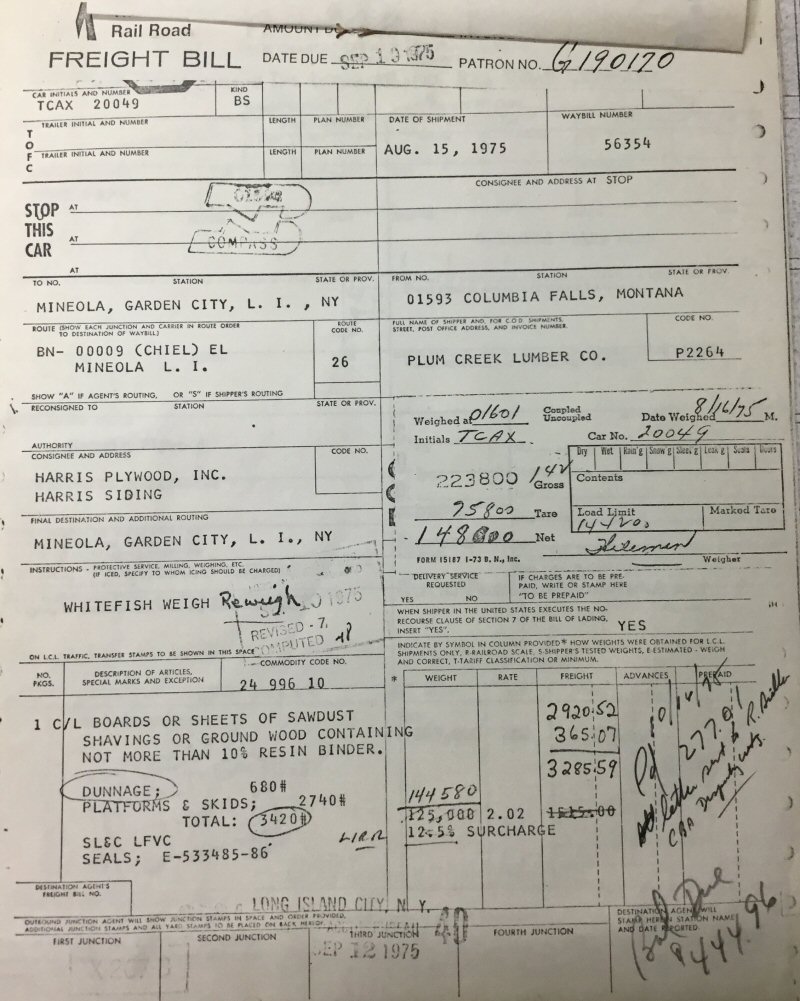 Rail Road
FREIGHT BILL
AMOUNT
DATE DUE SEP 19 1975 PATRON NO. G190170
CAR INITIALS AND NUMBER
TCAX 20049
KIND
BS
TOFC
TRAILER INITIAL AND NUMBER LENGTH PLAN NUMBER
TRAILER INITIAL AND NUMBER LENGTH PLAN NUMBER
DATE OF SHIPMENT
AUG. 15, 1975
WAYBILL NUMBER
56354
STOP THIS CAR
AT
AT
AT
COMPASS
CONSIGNEE AND ADDRESS AT STOP
TO NO. STATION STATE OR PROV.
MINEOLA, GARDEN CITY, L. I. , NY
FROM NO. STATION STATE OR PROV.
01593 COLUMBIA FALLS, MONTANA
ROUTE (SHOW EACH JUNCTION AND CARRIER IN ROUTE ORDER
TO DESTINATION OF WAYBILL)
BN- 00009 (CHIEL) EL
MINEOLA L. I.
ROUTE CODE NO.
26
SHOW "A" IF AGENT'S ROUTING, OR "S" IF SHIPPER'S ROUTING
FULL NAME OF SHIPPER AND, FOR C.O.D. SHIPMENTS,
STREET, POST OFFICE ADDRESS, AND INVOICE NUMBER.
PLUM CREEK LUMBER CO.
CODE NO.
P2264
RECONSIGNED TO STATION STATE OR PROV.
AUTHORITY
CONSIGNEE AND ADDRESS CODE NO.
HARRIS PLYWOOD, INC.
HARRIS SIDING
FINAL DESTINATION AND ADDITIONAL ROUTING
MINEOLA, GARDEN CITY, L. I., NY
Weighed at 01601 Coupled Uncoupled Date Weighed 8/16/75 M.
Initials TCAX Car No. 20049
223800 142 Gross
75800 Tare
148000 Net
Dry Wet Rain'g Snow'g Sleet'g Leak'g Seals Doors
Contents
Load Limit
144200
Marked Tare
Weigher
FORM 15187 1-73 B. N., Inc.
INSTRUCTIONS - PROTECTIVE SERVICE, MILLING, WEIGHING, ETC.
(IF ICED, SPECIFY TO WHOM ICING SHOULD BE CHARGED)
WHITEFISH WEIGH Reweigh
1975
REVISED - 7.
COMPUTED
ON L.C.L. TRAFFIC, TRANSFER STAMPS TO BE SHOWN IN THIS SPACE
DELIVERY SERVICE REQUESTED
YES NO
IF CHARGES ARE TO BE PRE-
PAID, WRITE OR STAMP HERE
"TO BE PREPAID"
WHEN SHIPPER IN THE UNITED STATES EXECUTES THE NO-
RECOURSE CLAUSE OF SECTION 7 OF THE BILL OF LADING,
INSERT "YES". YES
INDICATE BY SYMBOL IN COLUMN PROVIDED* HOW WEIGHTS WERE OBTAINED FOR L.C.L.
SHIPMENTS ONLY, R-RAILROAD SCALE, S-SHIPPER'S TESTED WEIGHTS, E-ESTIMATED - WEIGH
AND CORRECT, T-TARIFF CLASSIFICATION OR MINIMUM.
NO. PKGS.
DESCRIPTION OF ARTICLES,
SPECIAL MARKS AND EXCEPTION
COMMODITY CODE NO.
24 996 10
* WEIGHT RATE FREIGHT ADVANCES PREPAID
1 C/L BOARDS OR SHEETS OF SAWDUST
SHAVINGS OR GROUND WOOD CONTAINING
NOT MORE THAN 10% RESIN BINDER.
2920.52
365.07
3285.59
DUNNAGE; 680#
PLATFORMS & SKIDS; 2740#
TOTAL: 3420#
144580
125,000 2.02 1515.00
12.5% SURCHARGE
SL&C LFVC LIRR
SEALS; E-533485-86
Pd 10/16/75
277.01
letter sent to R. Biller
Bal Due
444.96
DESTINATION AGENT'S
FREIGHT BILL NO.
LONG ISLAND CITY, N. Y.
OUTBOUND JUNCTION AGENT WILL SHOW JUNCTION STAMPS IN SPACE AND ORDER PROVIDED,
ADDITIONAL JUNCTION STAMPS AND ALL YARD STAMPS TO BE PLACED ON BACK HEREOF.
DESTINATION AGENT WILL
STAMP HEREIN STATION NAME
AND DATE REPORTED.
FIRST JUNCTION SECOND JUNCTION THIRD JUNCTION FOURTH JUNCTION
40
SEP 12 1975